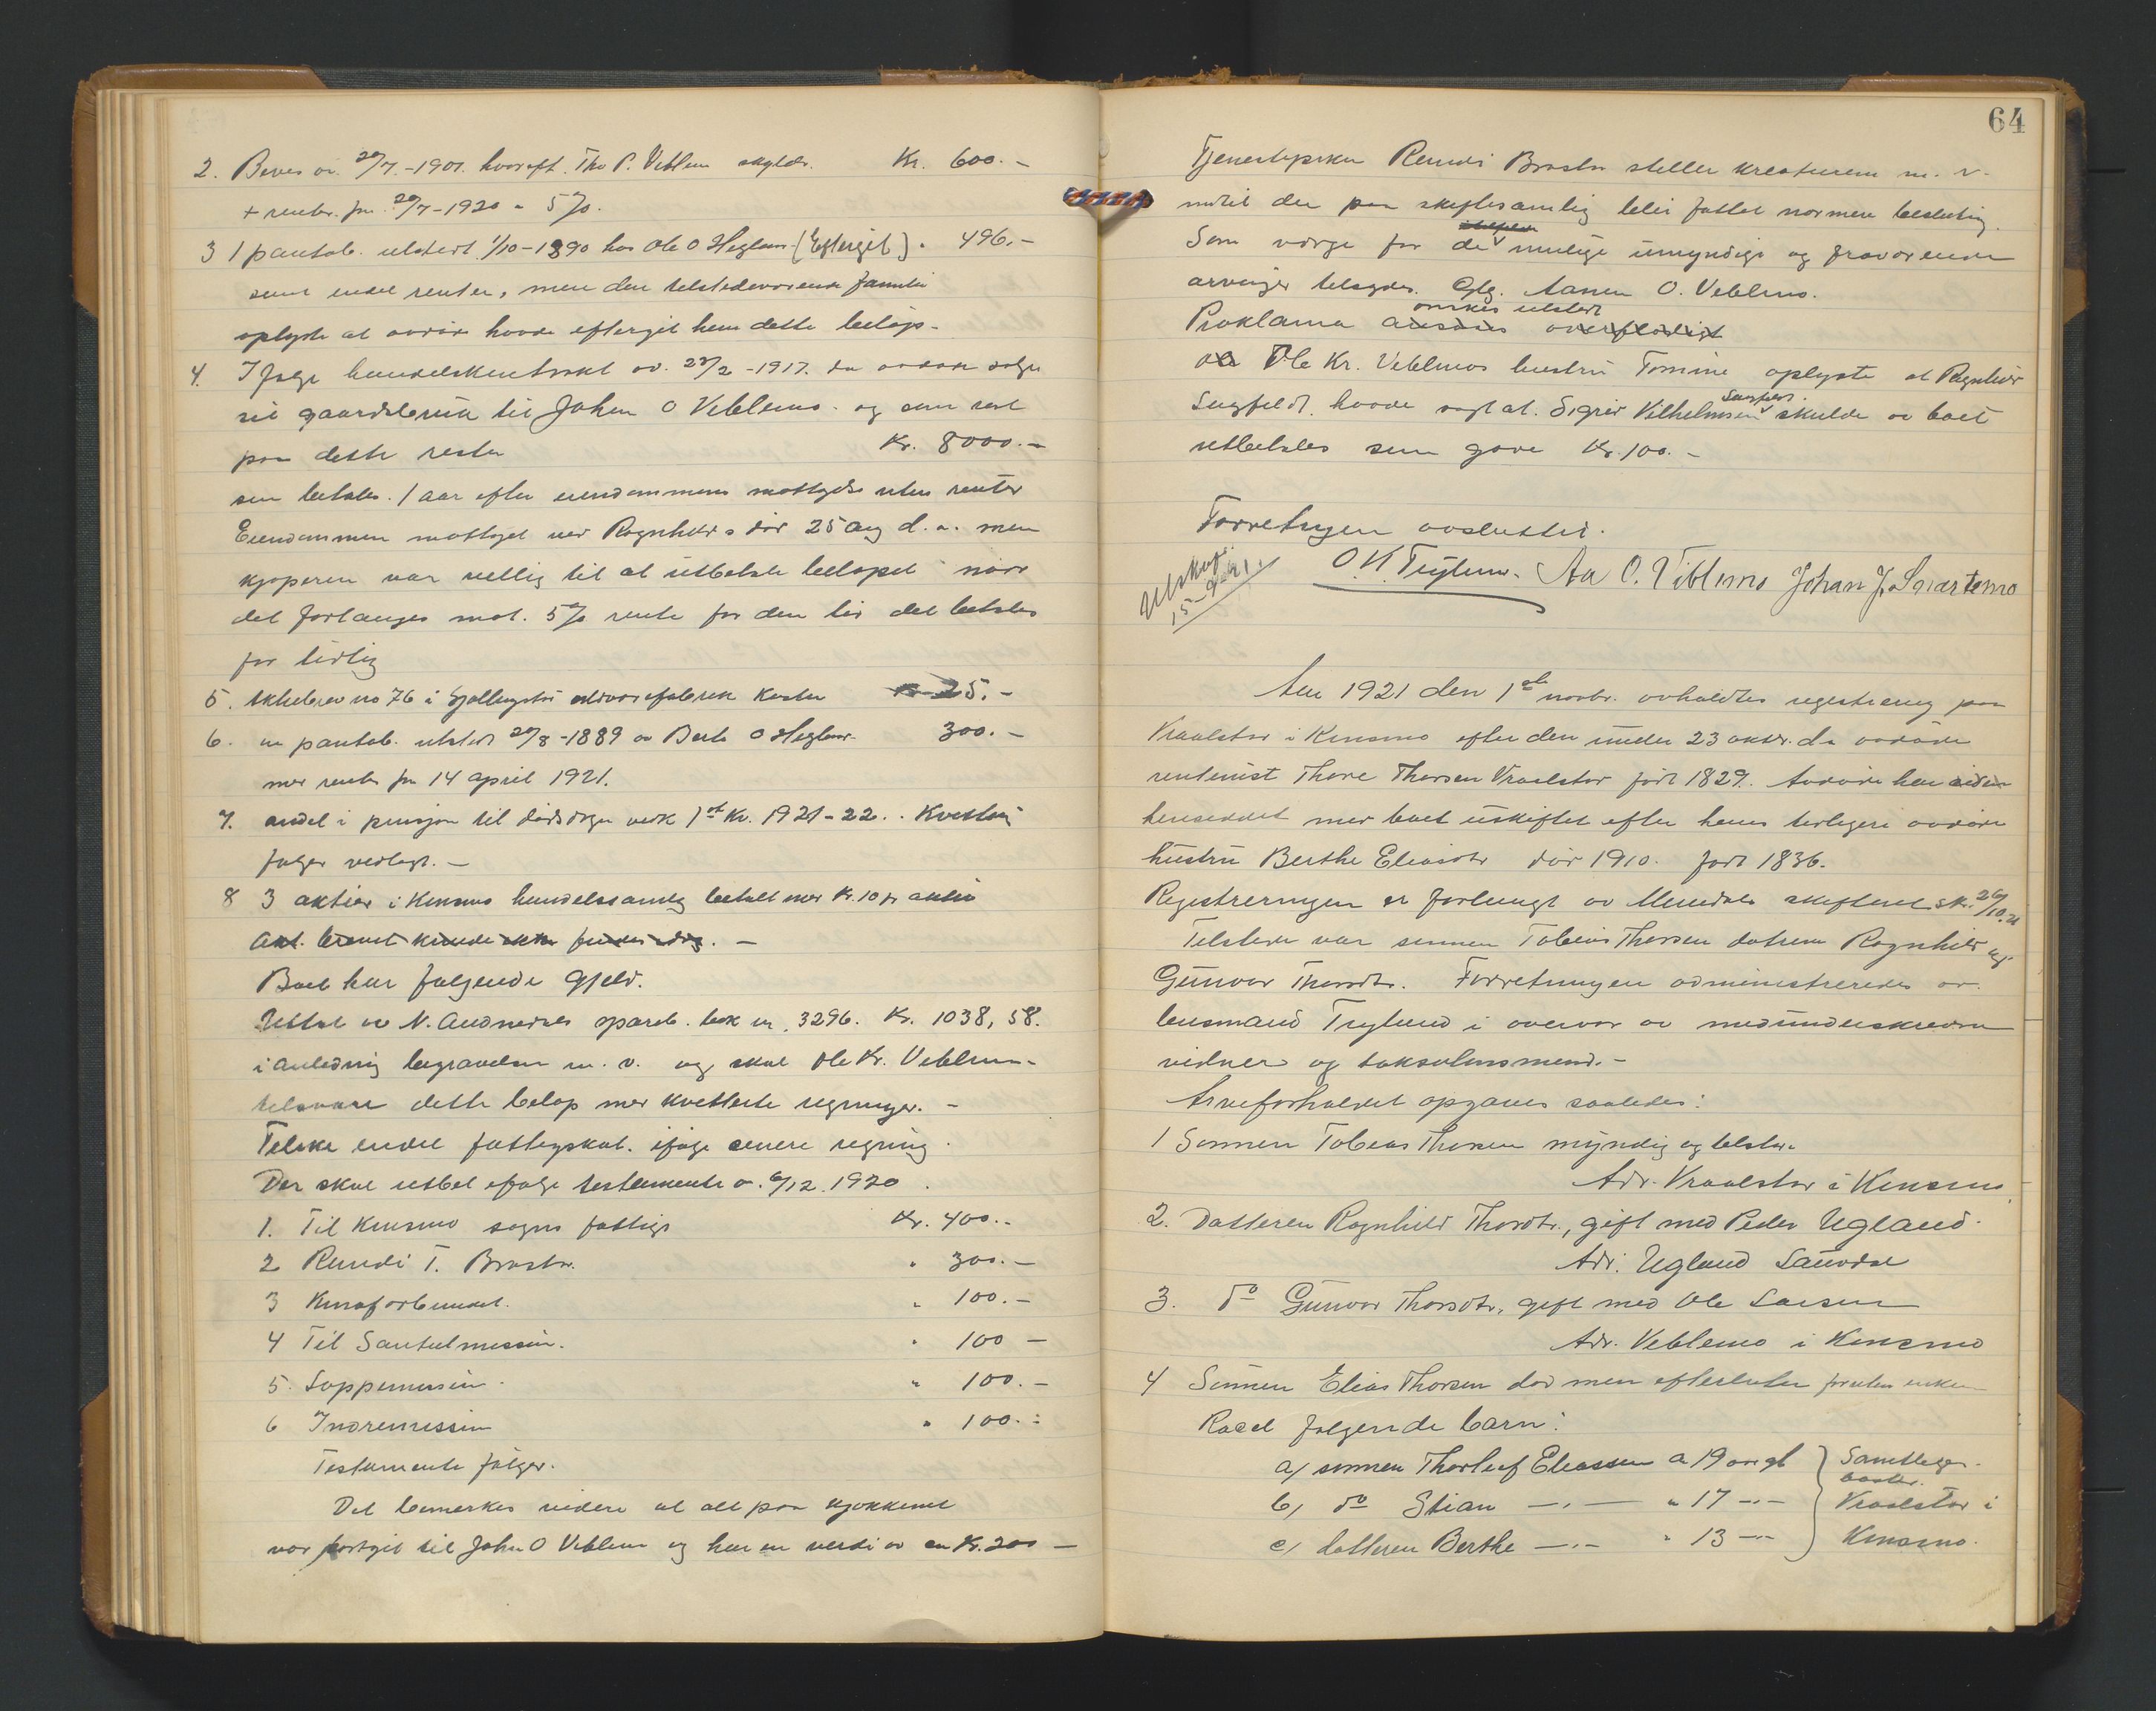 2. Bevis av 20/7-1901. hvoreft. Tho P. Veblem skylder. Kr. 600.-
+ renter fra 20/7-1920 a 5%.
3 1 pantob. utstedt 1/10-1890 hos Ole O Heglem (Eftergit) " 496.-
samt endel renter, men den tilstedeværende familie
oplyste at avdøde havde eftergit ham dette beløp.
4. Ifølge handelskontrakt av 22/2-1917. da avdøde solgte
sit gaardsbruk til Johan O Veblemo og som rest
paa dette rester Kr. 8000.-
som betales 1 aar efter eiendommens mottagelse uten renter
Eiendommen mottaget ved Ragnhilds død 25 aug d.a. men
kjøperen var villig til at utbetale beløpet naar
det forlanges mot. 5% rente for den tid det betales
for tidlig
5. Aktiebrev no 76 i uldvarefabrik Kr 25.-
6. en pantob. utstedt 20/8-1889 av Berte O Heglem 300.-
med renter fra 14 april 1921.
7. andel i pensjon til 1st Kv. 1921-22. Kvittering
følger vedlagt.-
8 3 aktier i Konsmo handelssamlag betalt med Kr. 10 pr aktie
Akt. brevet kunde ikke findes idag.-
Boet har følgende Gjeld.
Uttat av N. Audnedals spareb. bok nr. 3296. Kr. 1038,58.
i anledning begravelsen m.v. og skal Ole Kr. Veblemo
tilsvare dette beløp med kvitterte regninger.-
Tilske endel fattigskat. ifølge senere regning.
Der skal utbet ifølge testamente av 6/12.1920.
1. Til Konsmo sogns fattige Kr. 400.-
2 Rundi T. " 300.-
3 Kinaforbundet. " 100.-
4 Til Santalmissin. " 100-
5. Lappemissin. " 100.-
6 Indremissin " 100.-
Testamente følger.
Det bemerkes videre at alt paa kjøkkenet
var bortgit til Johan O Veblem og har en verdi av ca Kr. 200-
64
Tjenestepiken Rundi steller kreaturene m.v.
indtil der paa skiftesamling blir fattet nærmere beslutning.
Som verge for de mulige umyndige og fraværende
arvinger tilsagdes. Aanen O. Veblemo.
ønskes utstedt
Proklama ansees overflødigt
Ole Kr. Veblemos hustru Tomine oplyste at Ragnhild
havde sagt at. Sigrid Vilhelmsen skulde av boet
utbetales som gave Kr. 100.-
Forretningen avsluttet.
Utskog
O. N. Tryland. Aa O. Veblemo Johan J. Svartemo
Aar 1921 den 1ste novbr. avholdtes registrering paa
Vraalstad i Konsmo efter den under 23 oktbr. d.a avdøde
rentenist Thore Thorsen Vraalstad født 1829. Avdøde har siden
hensiddet med boet uskiftet efter hans tidligere avdøde
hustru Berthe Eliasdtr død 1910. født 1836.
Registreringen er forlangt av Mandals skifteret skr. 26/10.21
Tilstede var sønnen Tobias Thorsen datteren Ragnhild og
Gunvor Thorsdtr. Forretningen administreredes av
lensmand Tryland i overvær av medunderskrevne
vidner og takstmænd.-
Arveforholdet opgaves saaledes:
1 Sønnen Tobias Thorsen myndig og tilstede
Adr. Vraalstad i Konsmo
2. Datteren Ragnhild Thorsdtr., gift med Peder Ugland.
Adr. Ugland Laudal
3. do Gunvor Thorsdtr, gift med Ole Larsen
Adr. Veblemo i Konsmo
4 Sønnen Elias Thorsen død men efterlater foruten enken
Rakel følgende barn:
a/ sønnen Thorleif Eliassen a 19 aar gl
b/ do Stian -"- " 17 -"-
c/ datteren Berthe -"- " 13 -"-
Samtlige
Vraalstad i
Konsmo.